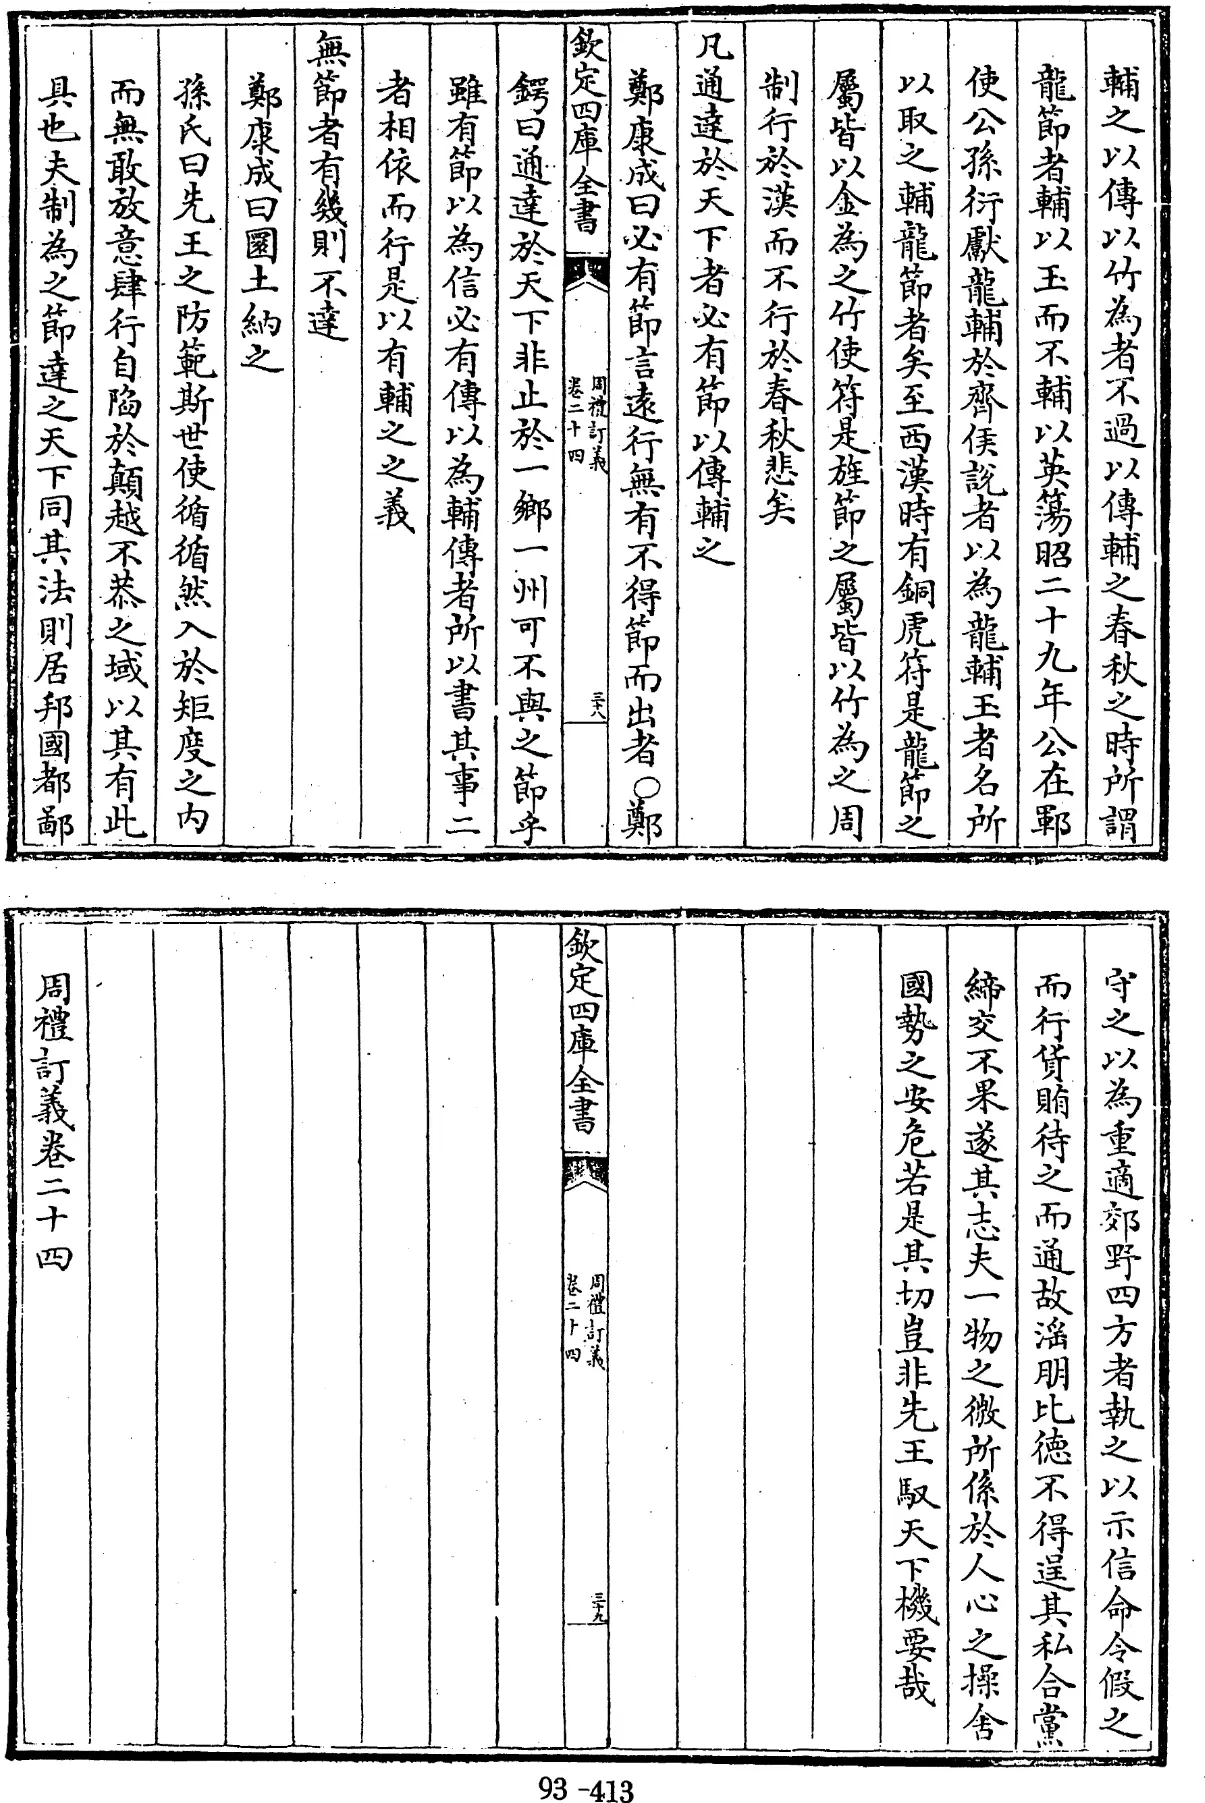 輔之以傳以竹為者不過以傳輔之春秋之時所謂
龍節者輔以玉而不輔以英簜昭二十九年公在鄆
使公孫衍獻龍輔於齊侯說者以為龍輔玉者名所
以取之輔龍節者矣至西漢時有銅虎符是龍節之
屬皆以金為之竹使符是旌節之屬皆以竹為之周
制行於漢而不行於春秋悲矣
凡通達於天下者必有節以傳輔之
鄭康成曰必有節言遠行無有不得節而出者○鄭
欽定四庫全書
周禮訂義
卷二十四
三十八
鍔曰通達於天下非止於一鄉一州可不與之節乎
雖有節以為信必有傳以為輔傳者所以書其事二
者相依而行是以有輔之之義
無節者有幾則不達
鄭康成曰圜土納之
孫氏曰先王之防範斯世使循循然入於矩度之內
而無敢放意肆行自陷於顛越不恭之域以其有此
具也夫制為之節達之天下同其法則居邦國都鄙
守之以為重適郊野四方者執之以示信命令假之
而行貨賄待之而通故滛朋比德不得逞其私合黨
締交不果遂其志夫一物之微所係於人心之操舍
國勢之安危若是其切豈非先王馭天下機要哉
欽定四庫全書
周禮訂義
卷二十四
三十九
周禮訂義卷二十四
93-413